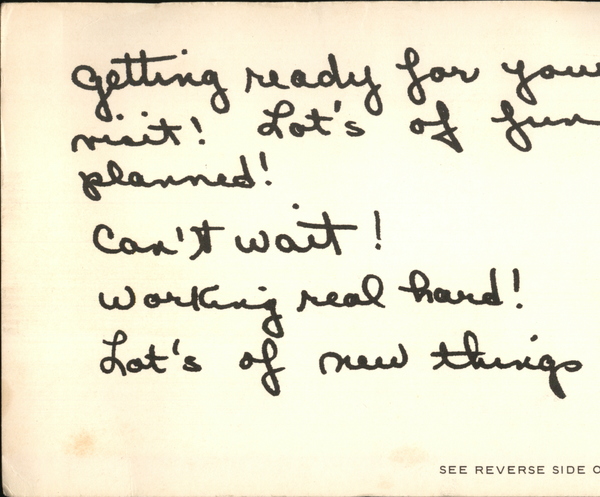 Getting ready for your
visit! Lot's of fun
planned!
Can't wait!
Working real hard!
Lot's of new things
SEE REVERSE SIDE O